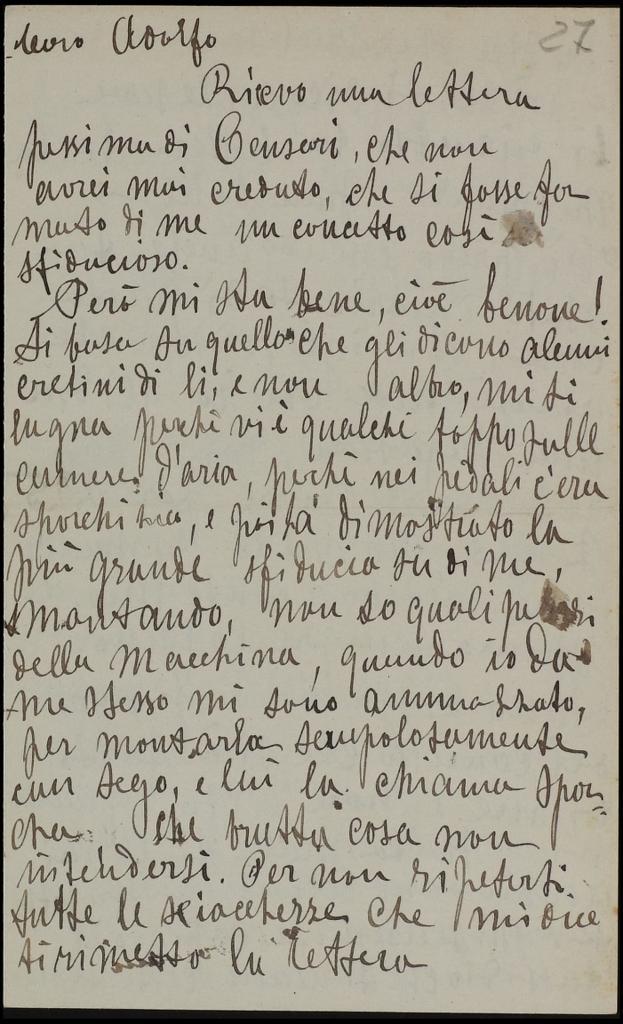 27
Caro Adolfo
Ricevo una lettera
pessima di Censori, che non
avrei mai creduto, che si fosse for
mato di me un concetto così
sfiducioso.
Però mi sta bene, cioè benone!
Si basa su quello che gli dicono alcuni
cretini di li, e non altro, mi si
lagna perchè vi è qualche toppo sulle
camere d'aria, perchè nei pedali c'era
sporchi e poi ha dimostrato la
più grande sfiducia su di me,
smontando, non so quali pezzi
della macchina, quando io da
me stesso mi sono ammazzato,
per montarla scrupolosamente
con sego, e lui la chiama spor-
ca. Che brutta cosa non
intendersi. Per non ripeterti
tutte le sciocchezze che mi dice
ti rimetto la lettera